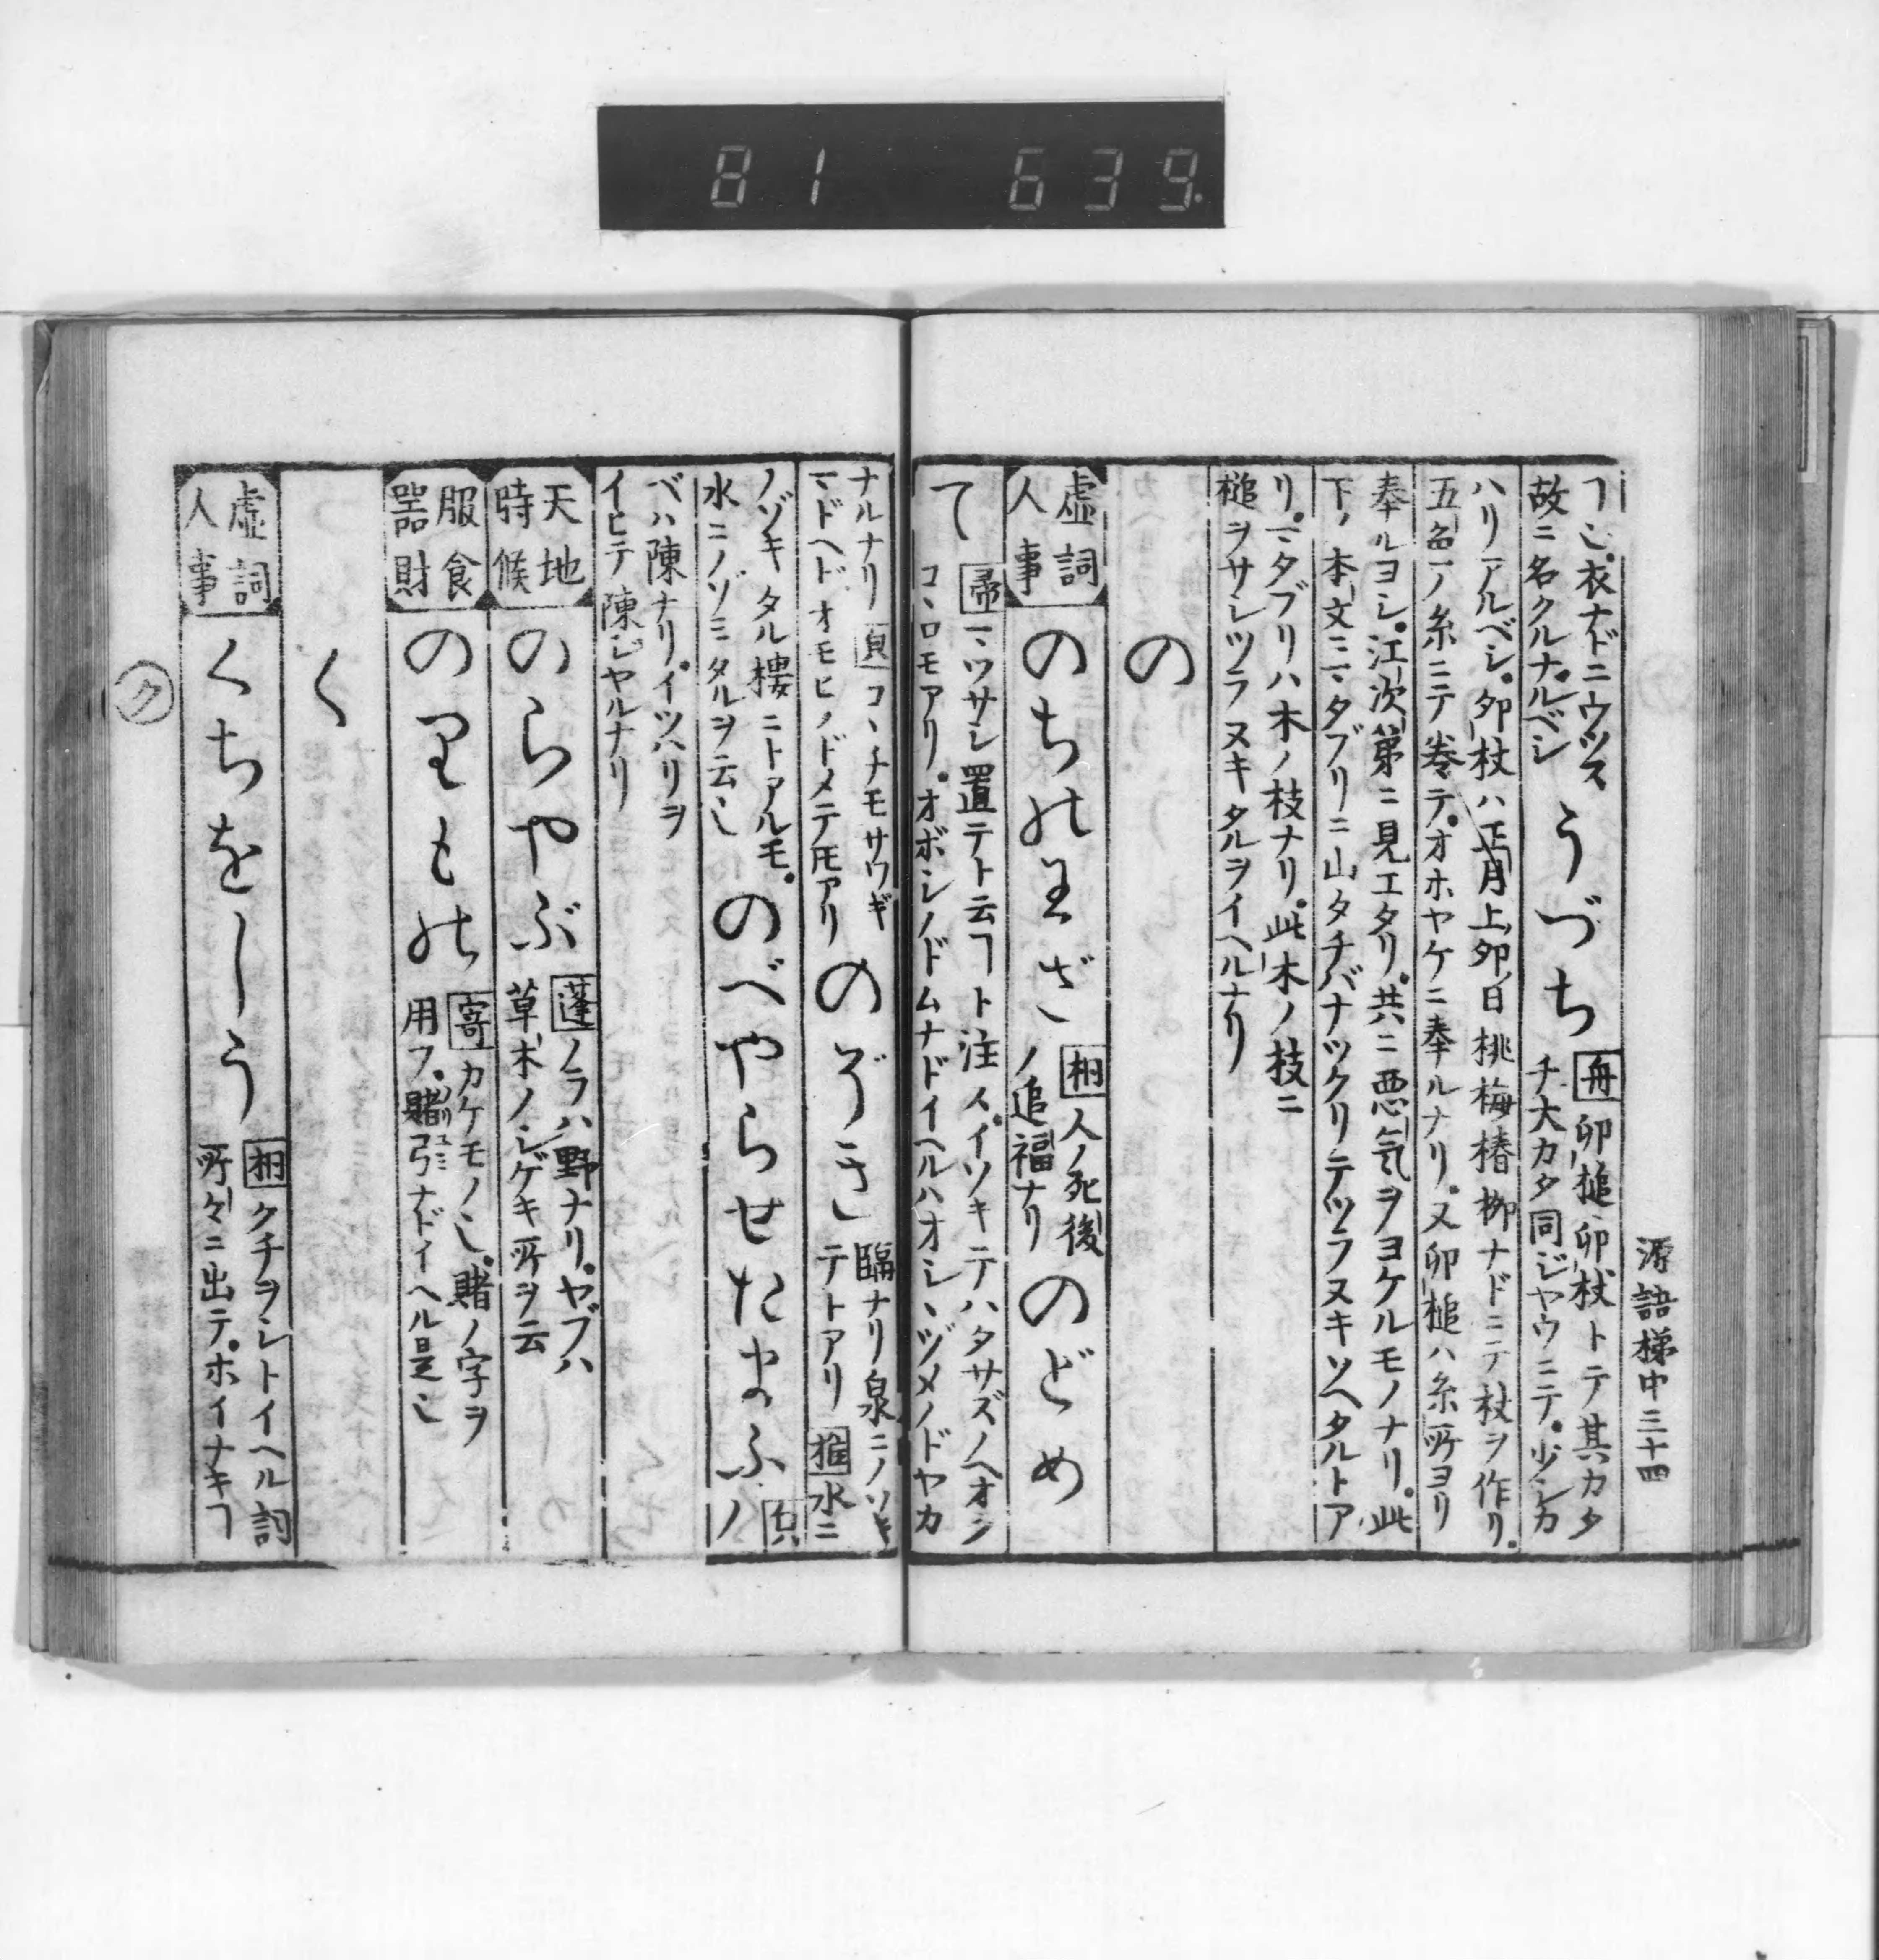 81 639
源語梯中三十四
ヿ也。衣ナドニウツス
故ニ名クルナルベシ
うづち
舟 卯槌、卯杖トテ其カタ
チ大カタ同ジヤウニテ。少シカ
ハリアルベシ。卯杖ハ正月上卯日桃梅椿柳ナドニテ杖ヲ作リ。
五色ノ糸ニテ巻テ。オホヤケニ奉ルナリ。又卯槌ハ糸所ヨリ
奉ルヨシ。江次第ニ見エタリ。共ニ悪気ヲヨケルモノナリ。此
下ノ本文ニマタブリニ山タチバナツクリテツラヌキソヘタルトア
リ。マタブリハ木ノ枝ナリ。此木ノ枝ニ
槌ヲサシツラヌキタルヲイヘルナリ
の
虚詞
人事
のちのわざ
柏 人ノ死後
ノ追福ナリ
のどめ
て
帚 マヅサシ置テトニ云ヿト注ス。イソキテハタサズノヘオシ
コヽロモアリ。オボシノドムナドイヘルハオシヽヅメノドヤカ
ナルナリ
コヽチモサワギ
マドヘドオモヒノドメテトモアリ
のぞき
臨ナリ泉ニノソキ
テトアリ
椎 水ニ
ノゾキタル楼ニトアルモ。
水ニノゾミタルヲ云也
のべやらせたまふ
ノ
ベハ陳ナリ。イツハリヲ
イヒテ陳シヤルナリ
天地
時候
のらやぶ
蓬 ノラハ野ナリ。ヤブハ
草木ノシゲキ所ヲ云
服食
器財
のりもの
寄 カケモノ也。賭ノ字ヲ
用フ。賭弓ナドイヘル是也
く
虚詞
人事
くちをしう
柏 クチヲシトイヘル詞
所々ニ出テ。ホイナキヿ
ク